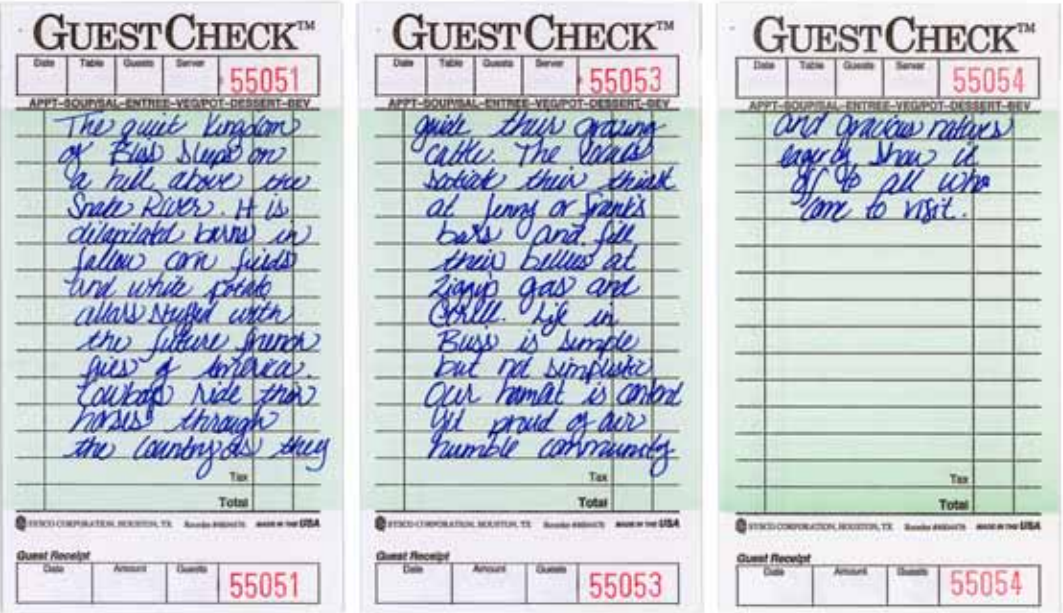 GUESTCHECK™
Date Table Guests Server 55051
APPT-SOUP/SAL-ENTREE-VEG/POT-DESSERT-BEV
The quiet kingdom
of Buss sleeps on
a hill above the
Snake River. It is
dilapitated barns in
fallow corn fields
and white potato
stuffed with
the future french
fries of America.
Cowboys ride their
horses through
the country as they
Tax
Total
SYSCO CORPORATION, HOUSTON, TX MADE IN THE USA
Guest Receipt
Date Amount Guests 55051
GUESTCHECK™
Date Table Guests Server 55053
APPT-SOUP/SAL-ENTREE-VEG/POT-DESSERT-BEV
guide their grazing
cattle. The locals
satiate their thirst
at Jenny or Frank's
bars and fill
their bellies at
Ziggy's gas and
Grill. Life in
Buss is simple
but not simplistic
Our hamlet is content
yet proud of our
humble community
Tax
Total
SYSCO CORPORATION, HOUSTON, TX MADE IN THE USA
Guest Receipt
Date Amount Guests 55053
GUESTCHECK™
Date Table Guests Server 55054
APPT-SOUP/SAL-ENTREE-VEG/POT-DESSERT-BEV
and gracious natives
eagerly show it
off to all who
come to visit.
Tax
Total
SYSCO CORPORATION, HOUSTON, TX MADE IN THE USA
Guest Receipt
Date Amount Guests 55054